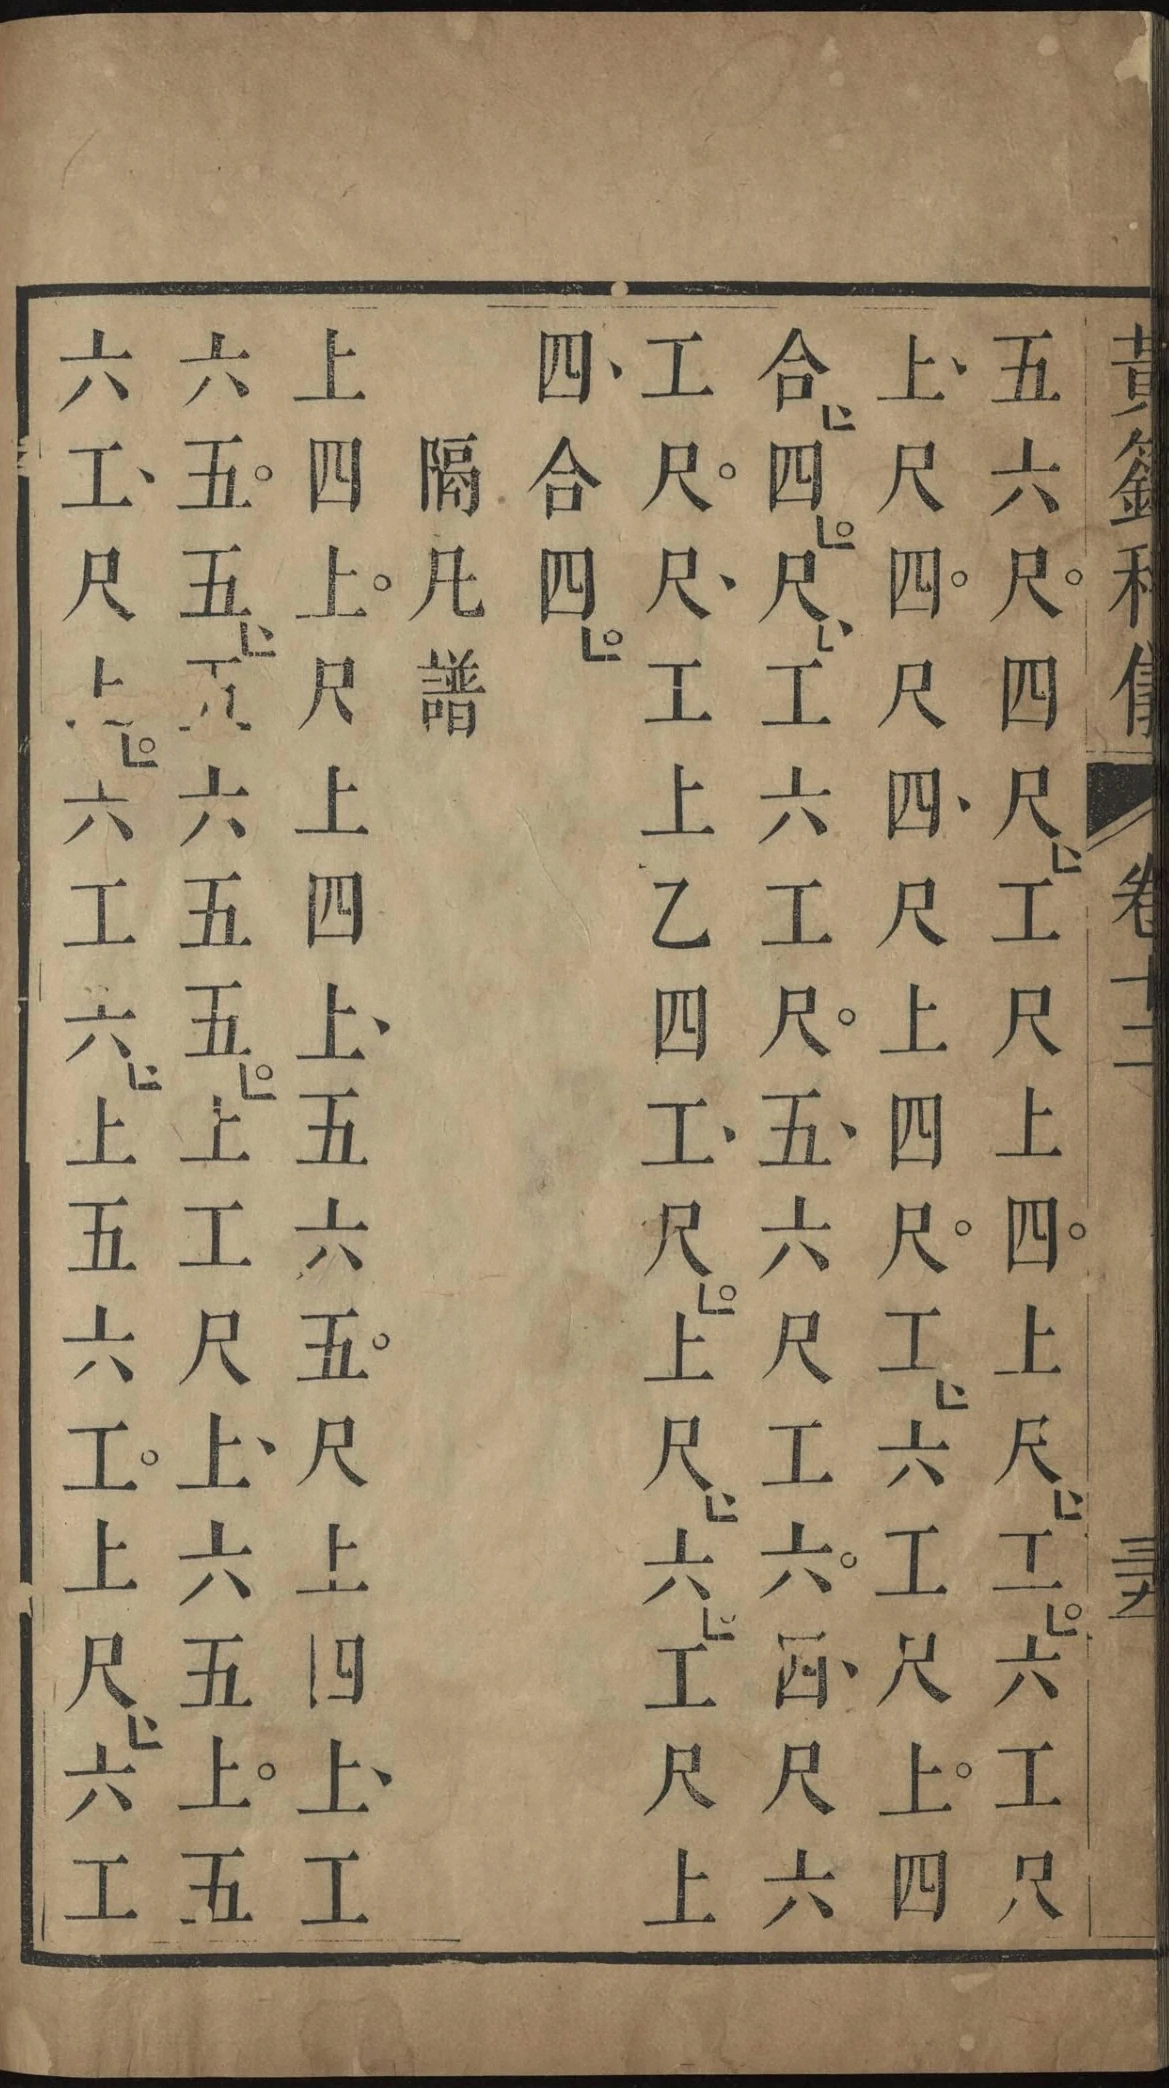 黃籙科儀 卷十二 三五
五六尺四尺工尺上四上尺工六工尺
上尺四尺四尺上四尺工六工尺上四
合四尺工六工尺五六尺工六四尺六
工尺尺工上乙四工尺上尺六工尺上
四合四
隔凡譜
上四上尺上四上五六五尺上四上工
六五五五六五五上工尺上六五上五
六工尺上六工六上五六工上尺六工